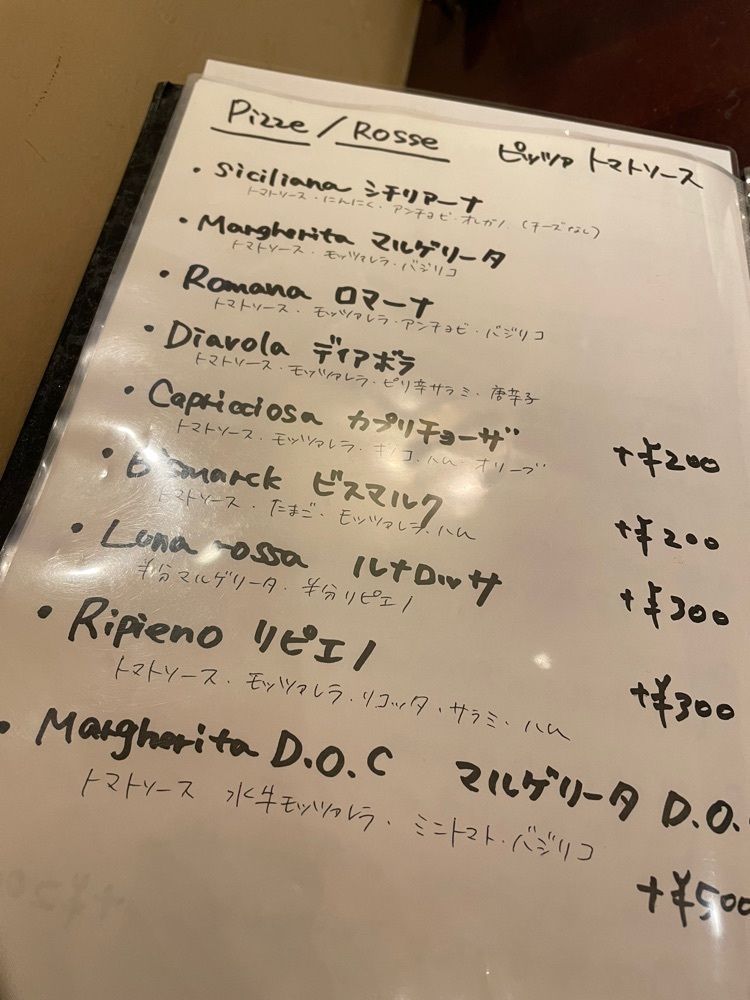 Pizze / Rosse ピッツァ トマトソース
・Siciliana シチリアーナ
トマトソース・にんにく・アンチョビ・オレガノ (チーズなし)
・Margherita マルゲリータ
トマトソース・モッツァレラ・バジリコ
・Romana ロマーナ
トマトソース・モッツァレラ・アンチョビ・バジリコ
・Diavola ディアボラ
トマトソース・モッツァレラ・ピリ辛サラミ・唐辛子
・Capricciosa カプリチョーザ +¥200
トマトソース・モッツァレラ・キノコ・ハム・オリーブ
・Bismarck ビスマルク +¥200
トマトソース・たまご・モッツァレラ・ハム
・Luna rossa ルナロッサ +¥300
半分マルゲリータ・半分リピエノ
・Ripieno リピエノ +¥300
トマトソース・モッツァレラ・リコッタ・サラミ・ハム
・Margherita D.O.C マルゲリータ D.O.
トマトソース 水牛モッツァレラ・ミニトマト・バジリコ
+¥500